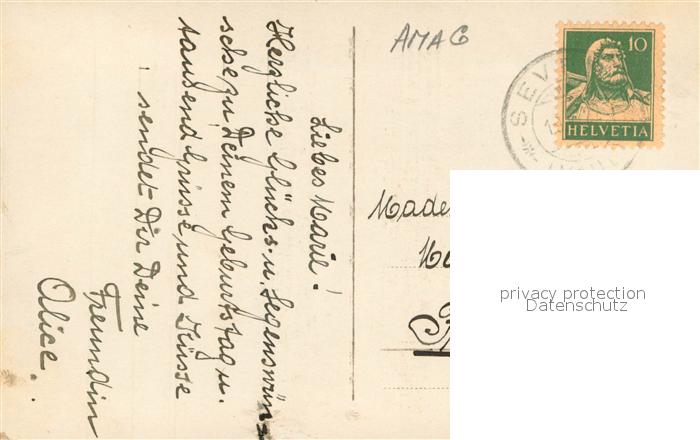 Liebes Marie!
Herzliche Glücks- u. Segenswün-
sche zu Deinem Geburtstag u.
tausend Grüsse und Küsse
sendet Dir Deine
Freundin
Alice.
AMAG
10
HELVETIA
SEV
Made
privacy protection
Datenschutz